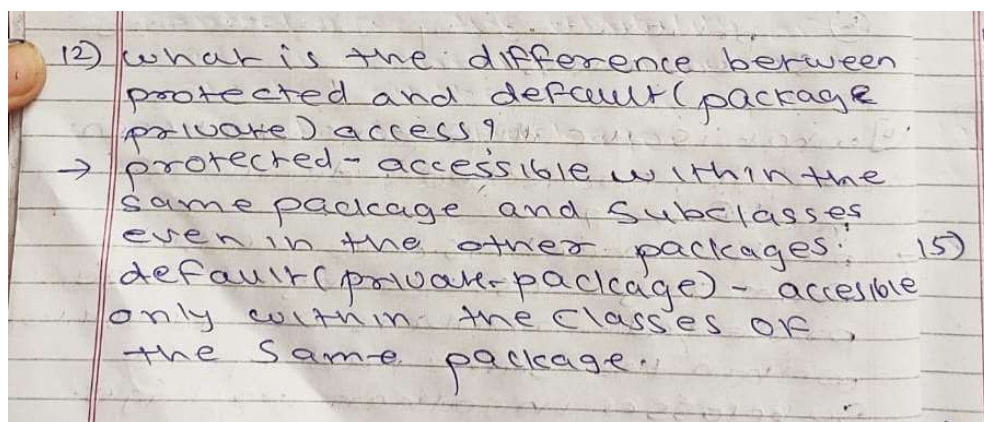 12) what is the difference between
protected and default (package
private) access?
→ protected - accessible within the
same package and subclasses
even in the other packages.
15)
default (private-package) - accesible
only within the classes of
the same package.